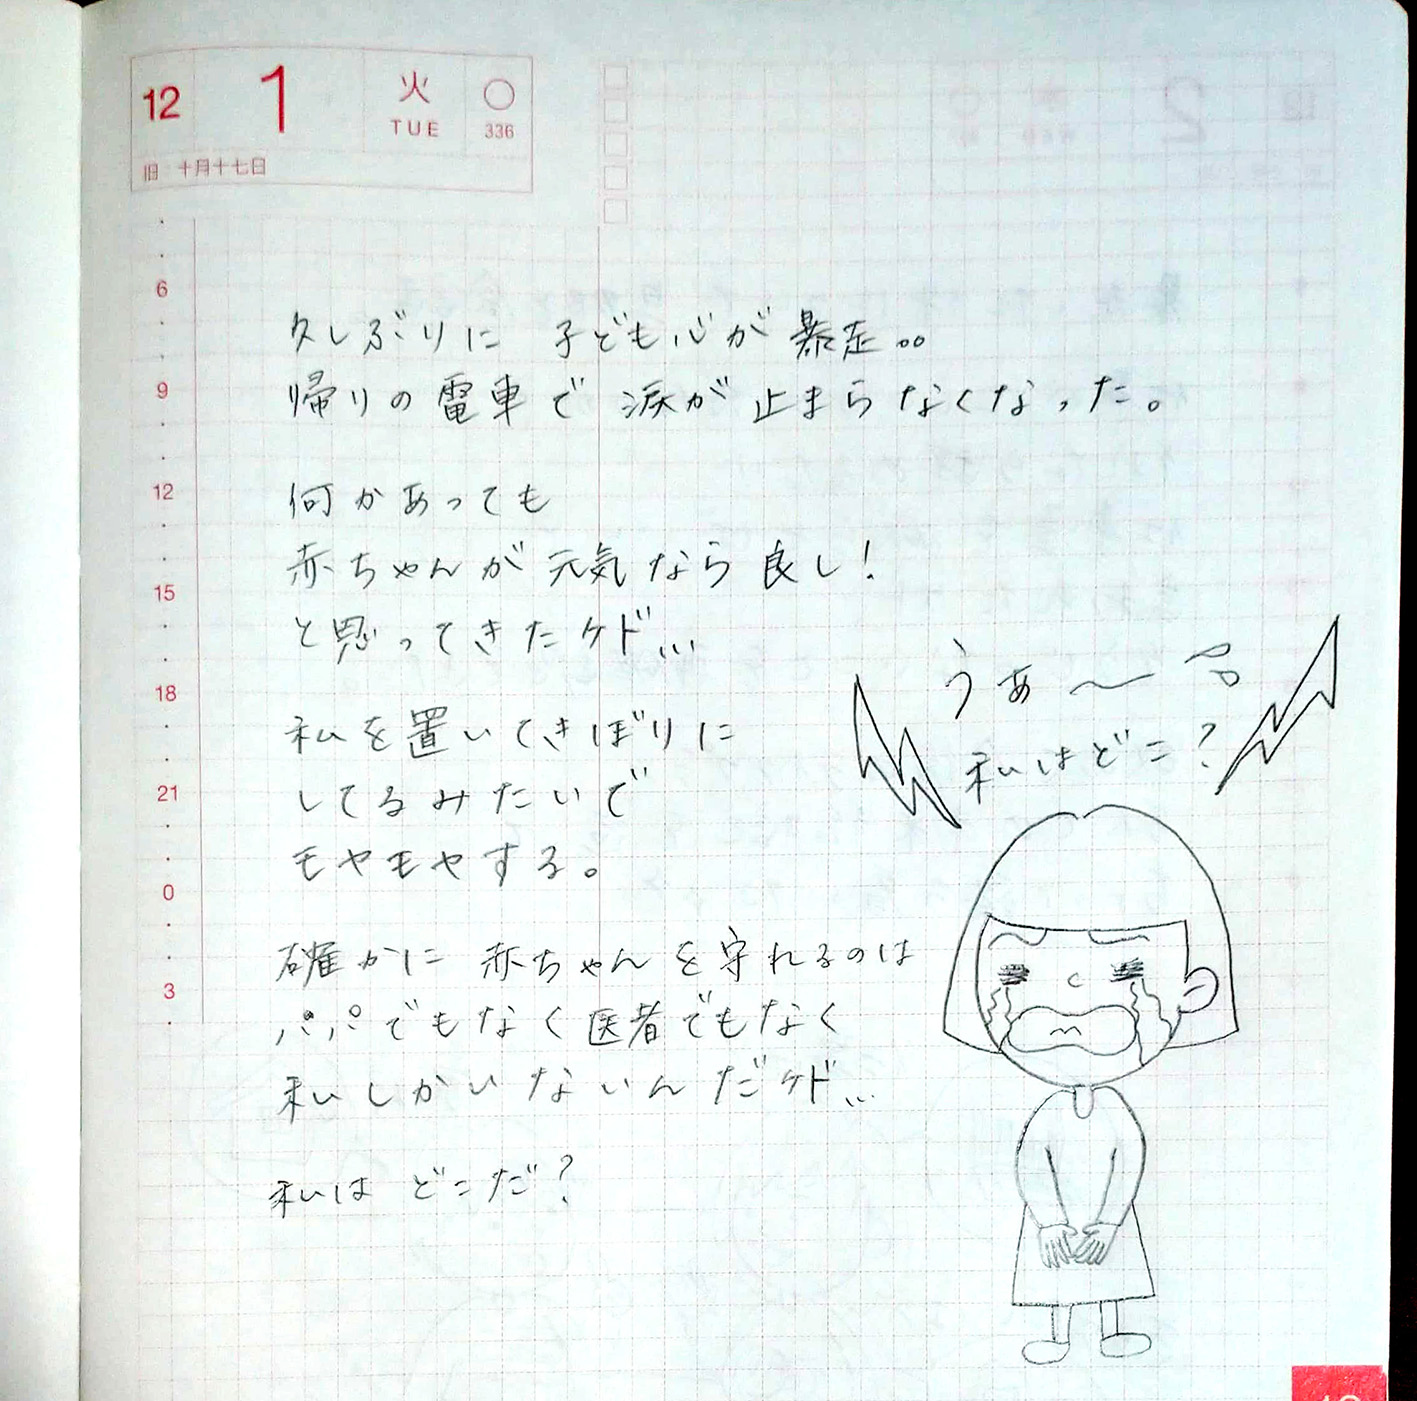 12 1 火 TUE ○ 336
旧 十月十七日
6
9
12
15
18
21
0
3
久しぶりに 子ども心が 暴走。。
帰りの電車で 涙が止まらなくなった。
何かあっても
赤ちゃんが元気なら良し!
と思ってきたケド...
私を置いてきぼりに
してるみたいで
モヤモヤする。
確かに 赤ちゃんを守れるのは
パパでもなく医者でもなく
私しかいないんだケド...
私は どこだ?
うあ〜
私はどこ?